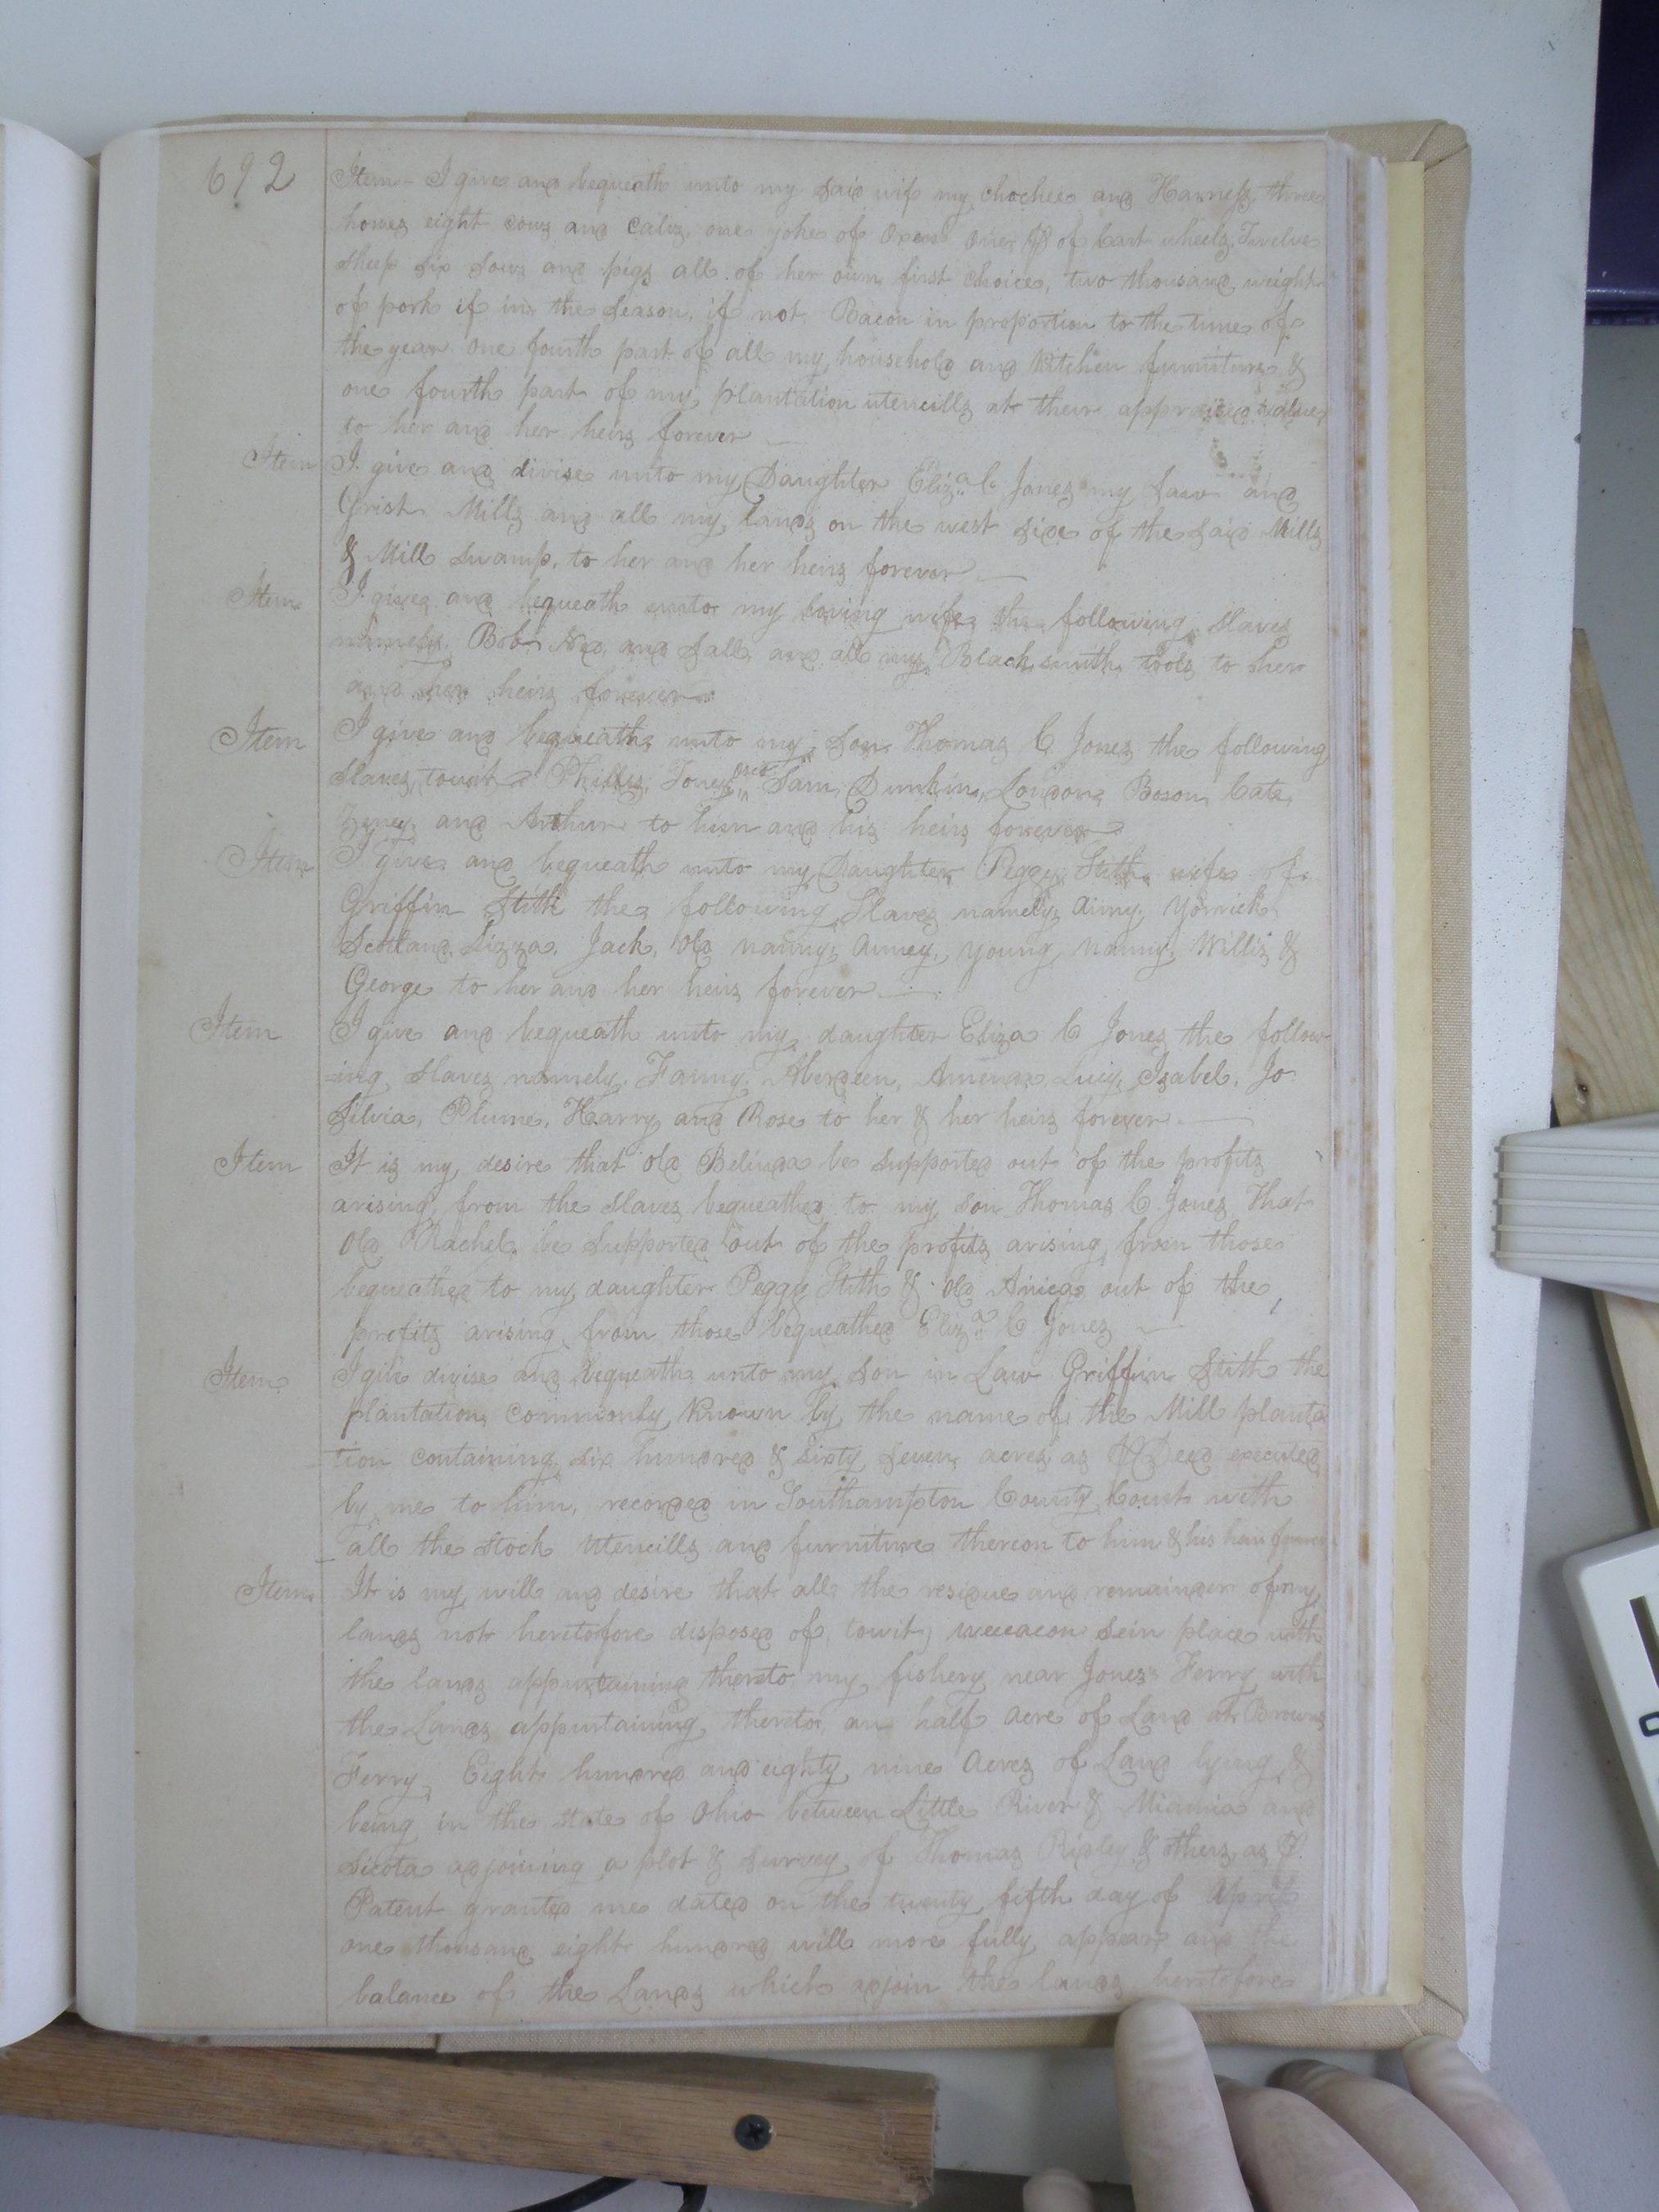 692
Item - I give and bequeath unto my said wife my chochee and Harness, three
horses eight cows and calvs, one yoke of Oxen One pr of Cart wheels, Twelve
sheep six sows and pigs all of her own first choice, two thousand weight
of pork if in the season, if not, Bacon in proportion to the time of
the year One fourth part of all my household and Kitchen furniture &
one fourth part of my plantation utencills at their appraised value
to her and her heirs forever
Item I give and divise unto my Daughter Eliza C Jones my Saw and
Grist Mills and all my lands on the west side of the said Mills
& Mill Swamp, to her and her heirs forever
Item I give and bequeath unto my loving wife the following slaves
namely, Bob, Ned, and Sall, and all my Blacksmith tools to her
and her heirs forever
Item I give and bequeath unto my son Thomas C Jones the following
slaves, towit Phillis, Toney, Sam, Dunkin, London, Boson, Cate,
and Arthur to him and his heirs forever
Item I give and bequeath unto my Daughter Peggy Stith wife of
Griffin Stith the following Slaves namely, Aimy, Yorrick
Scotland, Lizza, Jack, Old Nanny, Anney, Young Nanny, Willis &
George to her and her heirs forever
Item I give and bequeath unto my daughter Eliza C Jones the follow
-ing slaves namely, Fanny, Aberdeen, Luiy, Isabel, Jo
Silvia, Plume, Harry and Rose to her & her heirs forever
Item It is my desire that Old Belinda be supported out of the profits
arising from the slaves bequeathed to my son Thomas C Jones That
Old Rachel be supported out of the profits arising from those
bequeathed to my daughter Peggy Stith & Old Anica out of the
profits arising from those bequeathed Eliza C Jones
Item I give divise and bequeath unto my son in Law Griffin Stith the
plantation commonly known by the name of the Mill planta
tion containing six hundred & sixty seven acres as pr Deed executed
by me to him, recorded in Southampton County Court with
all the stock utencills and furniture thereon to him & his heirs forever
Item It is my will and desire that all the residue and remainder of my
lands not heretofore disposed of, towit, sein place with
the lands appurtaining thereto my fishery near Jones's Ferry with
the Lands appurtaining thereto, an half acre of Land at Browns
Ferry, Eight hundred and eighty nine acres of Land lying &
being in the state of Ohio between Little River & Miamia and
Sicota adjoining a plot & survey of Thomas Ridley & others, as pr
Patent granted me dated on the twenty fifth day of April
one thousand eight hundred will more fully appear and the
balance of the Lands which adjoin the lands heretofore